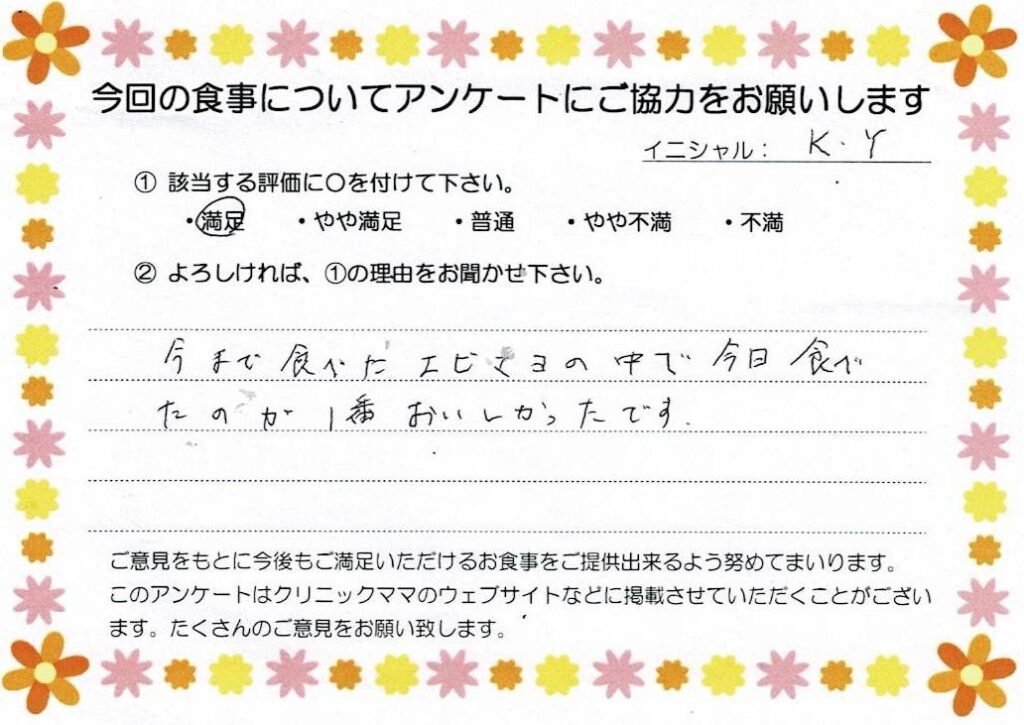 今回の食事についてアンケートにご協力をお願いします
イニシャル： K.Y
① 該当する評価に〇を付けて下さい。
・満足 ・やや満足 ・普通 ・やや不満 ・不満
② よろしければ、①の理由をお聞かせ下さい。
今まで食べたエビマヨの中で今日食べ
たのが1番おいしかったです.
ご意見をもとに今後もご満足いただけるお食事をご提供出来るよう努めてまいります。
このアンケートはクリニックママのウェブサイトなどに掲載させていただくことがござい
ます。たくさんのご意見をお願い致します。